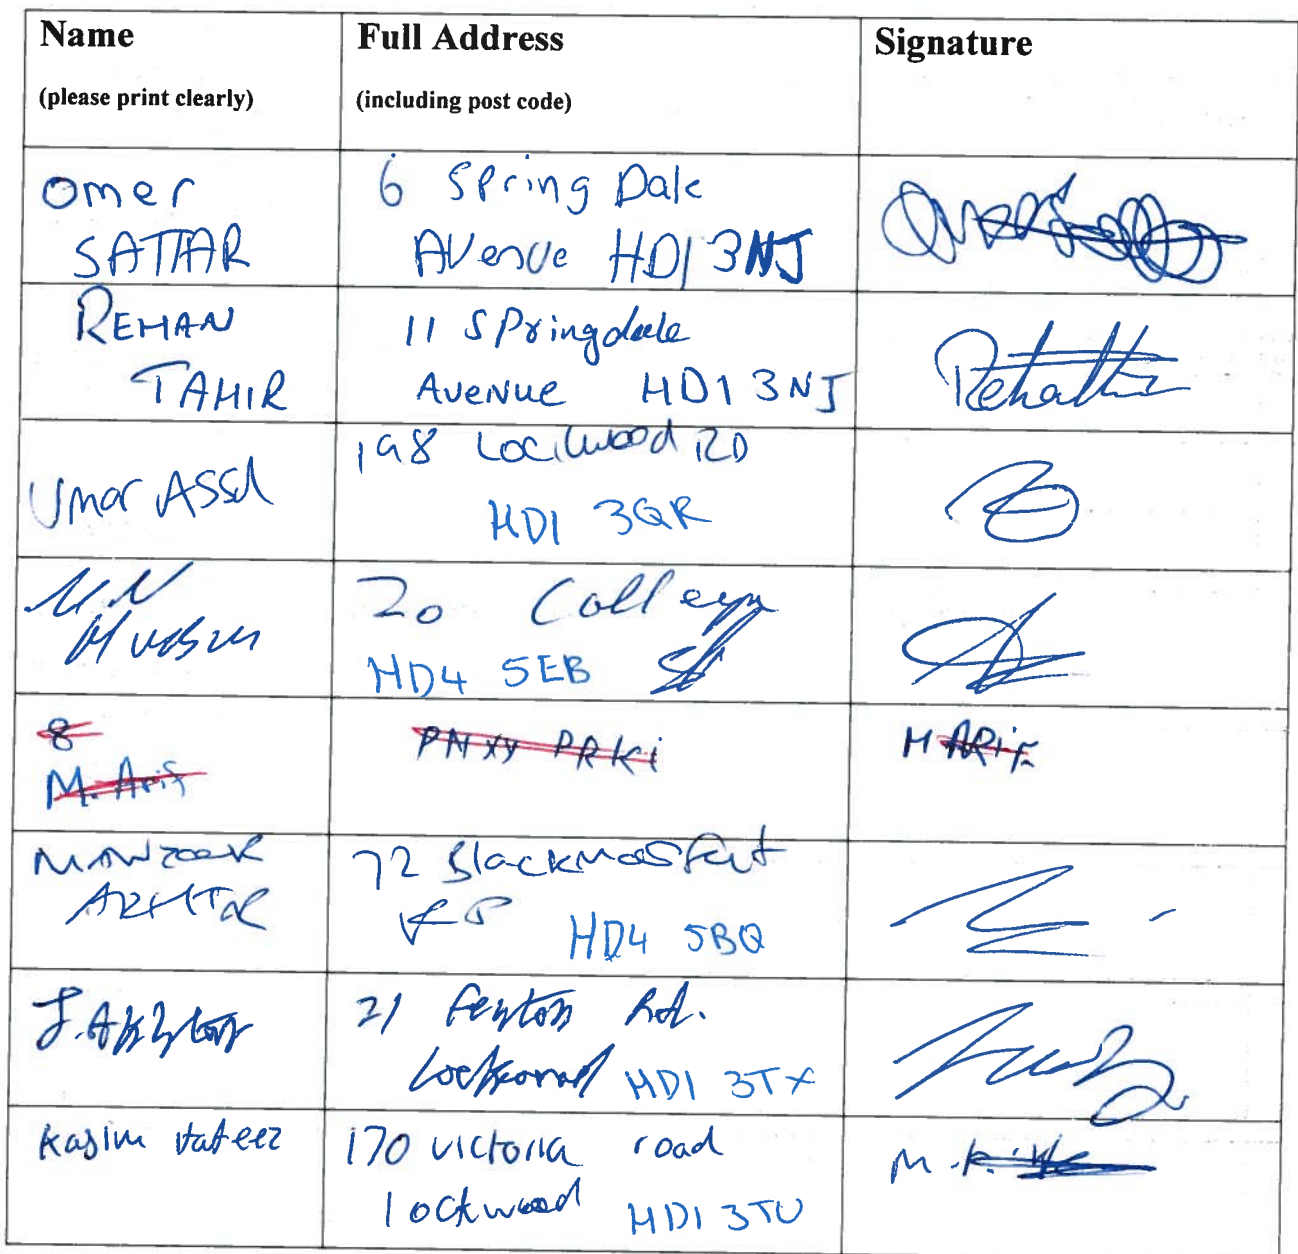 Name
Full Address
Signature
(please print clearly)
(including post code)
Omer
SATTAR
6 Spring Dale
Avenue HD1 3NJ
REHAN
TAHIR
11 Springdale
Avenue HD1 3NJ
Umar Assd
198 Lockwood RD
HD1 3QR
20 College
HD4 5EB St
8
M. Arif
M ARif
MANZOOR
AKHTAR
72 Blackmoorfoot
RD HD4 5BQ
J. Akhtar
21 Fenton Rd.
Lockwood HD1 3TX
Kasim Hafeez
170 victoria road
lockwood HD1 3TU